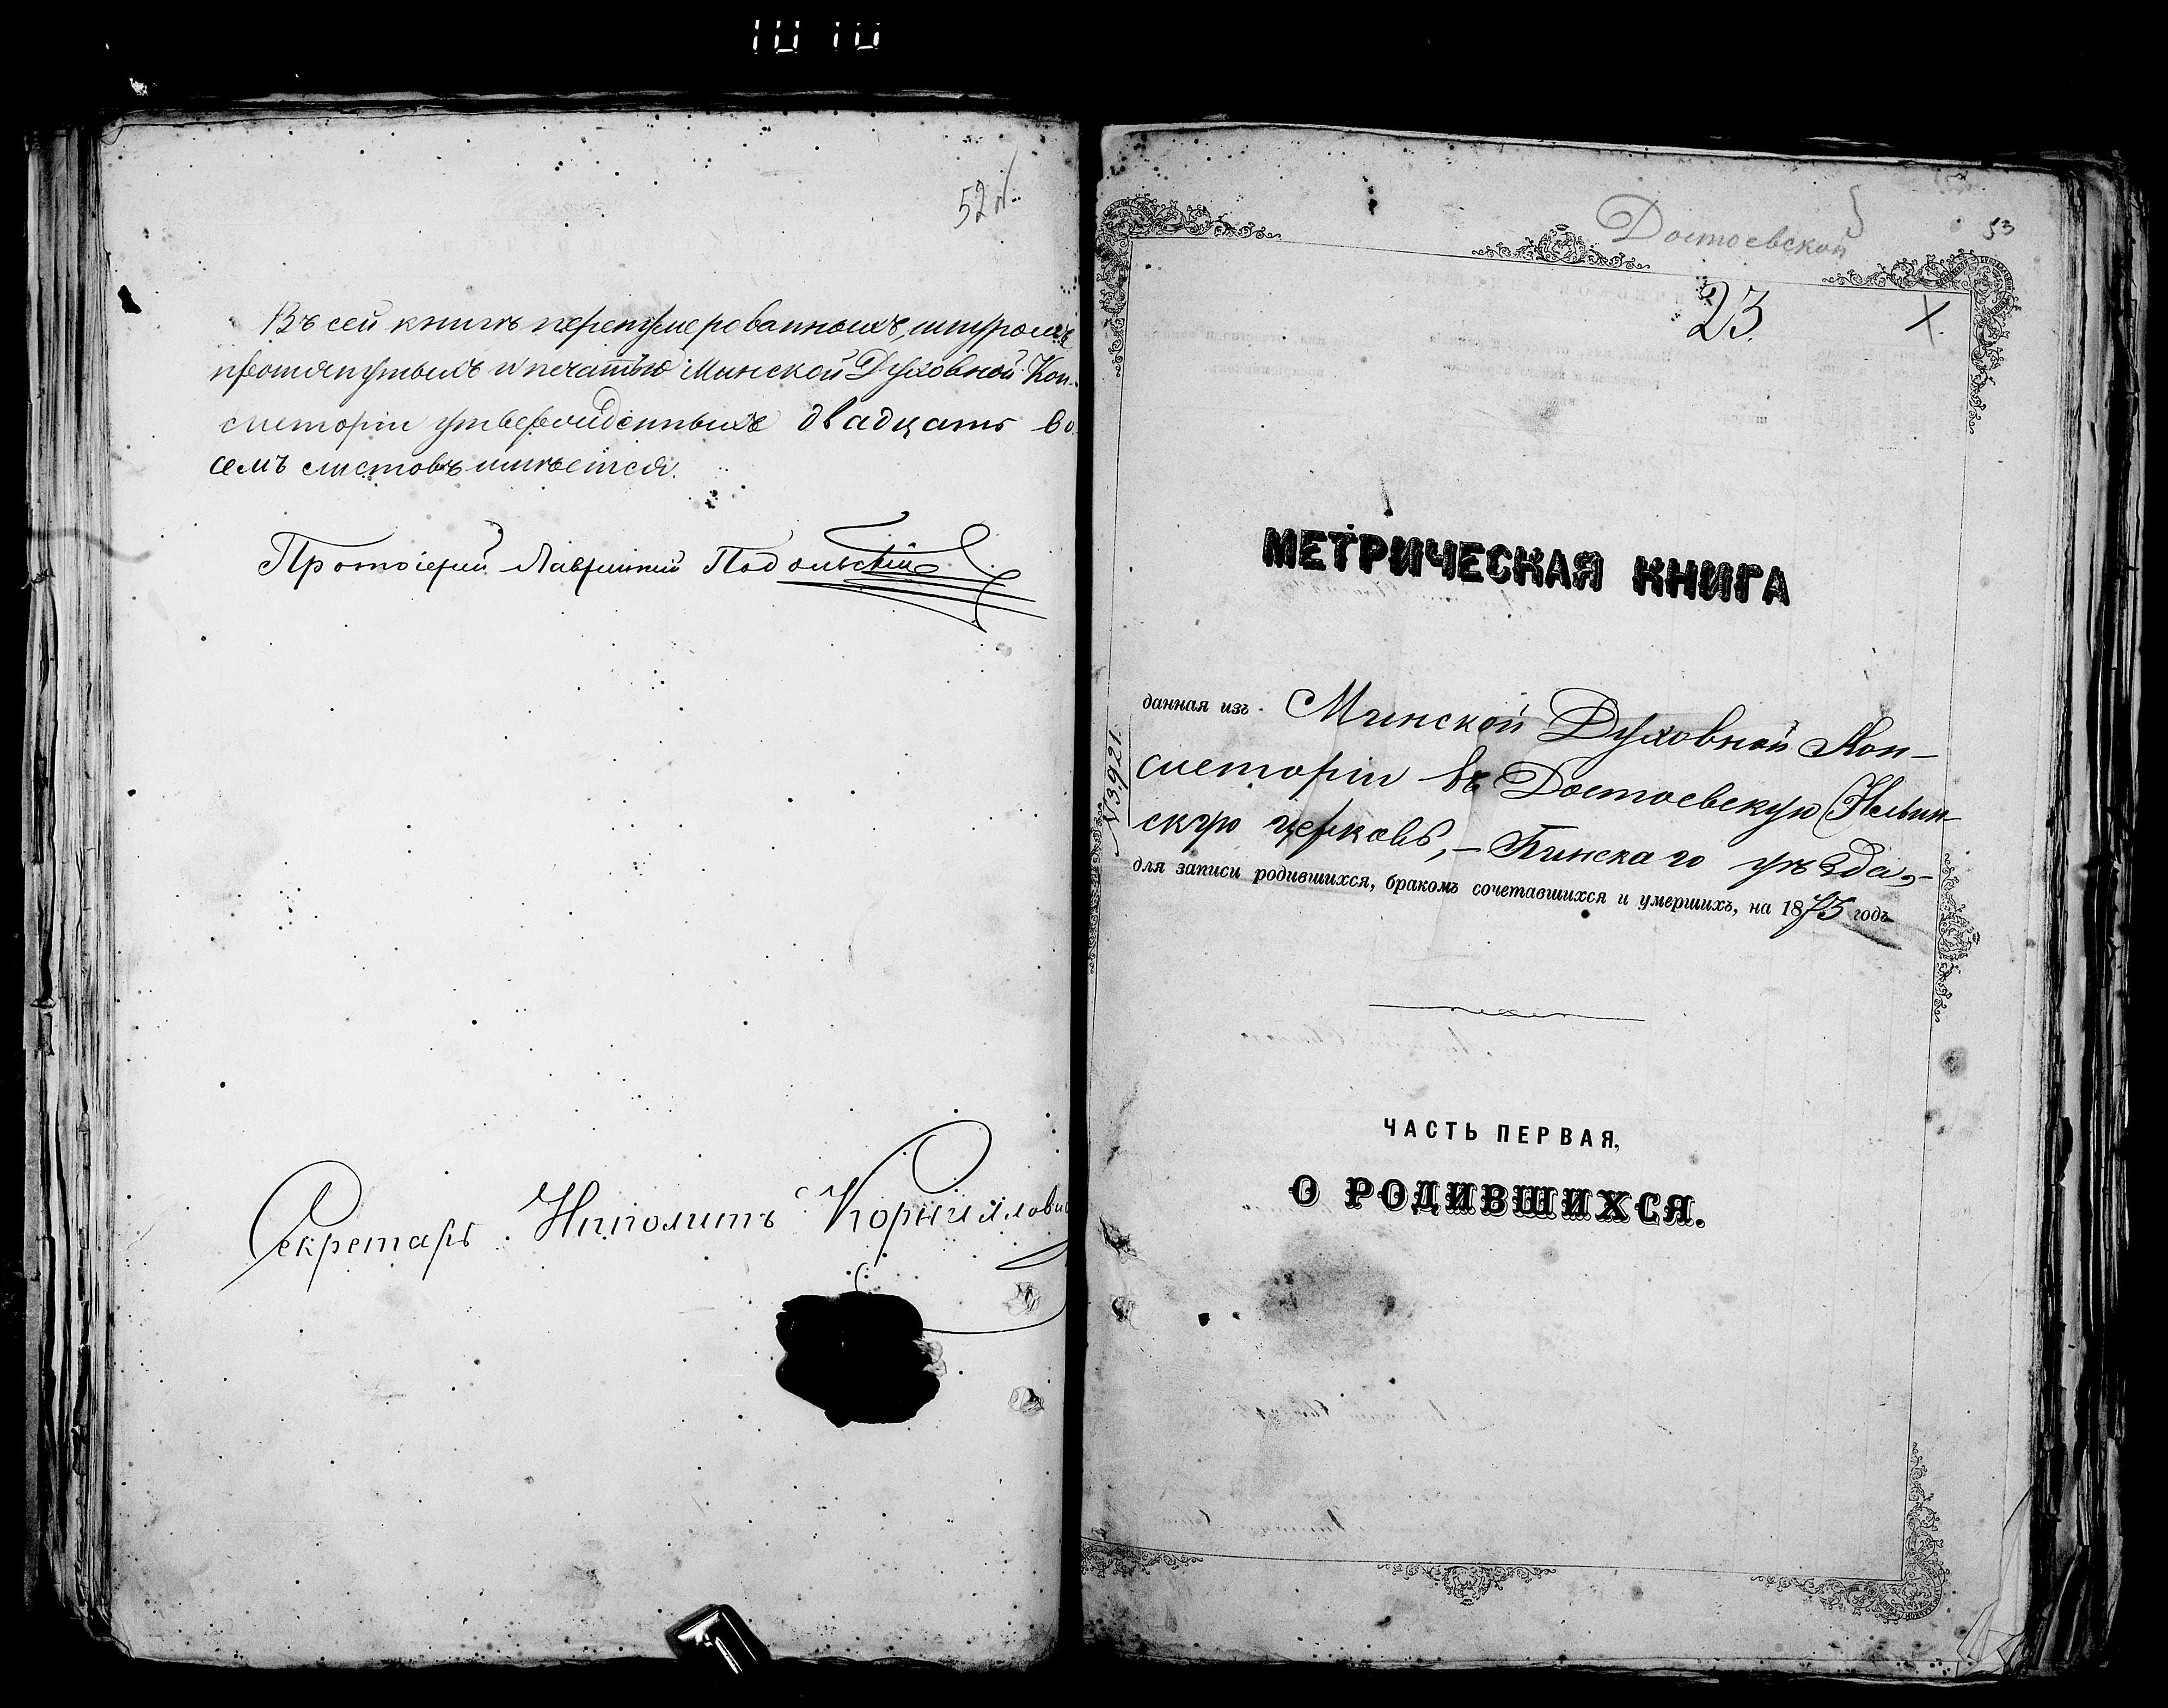 52 л.
Въ сей книгѣ перенумерованныхъ, шнуромъ
протянутыхъ и печатью Минской Духовной Кон-
систоріи утвержденныхъ двадцать во
семь листовъ имѣется.
Протоіерей Лаврентій Подольскій
Секретарь Ипполитъ Корнилови
Достоевской
53
23.
X.
МЕТРИЧЕСКАЯ КНИГА
№ 3921.
данная изъ Минской Духовной Кон-
систоріи въ Достоевскую
скую церковь, – Пинскаго уѣзда, –
для записи родившихся, бракомъ сочетавшихся и умершихъ, на 1873 годъ
ЧАСТЬ ПЕРВАЯ,
О РОДИВШИХСЯ.